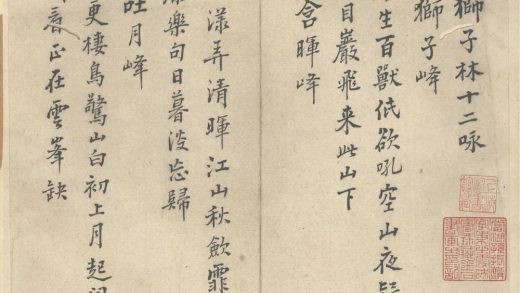 獅子林十二咏
獅子峰
生百獸低欲吼空山夜
目巖飛来此山下
含暉峰
漾弄清暉江山秋歛霏
樂句日暮忘歸
吐月峰
更棲鳥驚山白初上月起
看正在雲峯缺